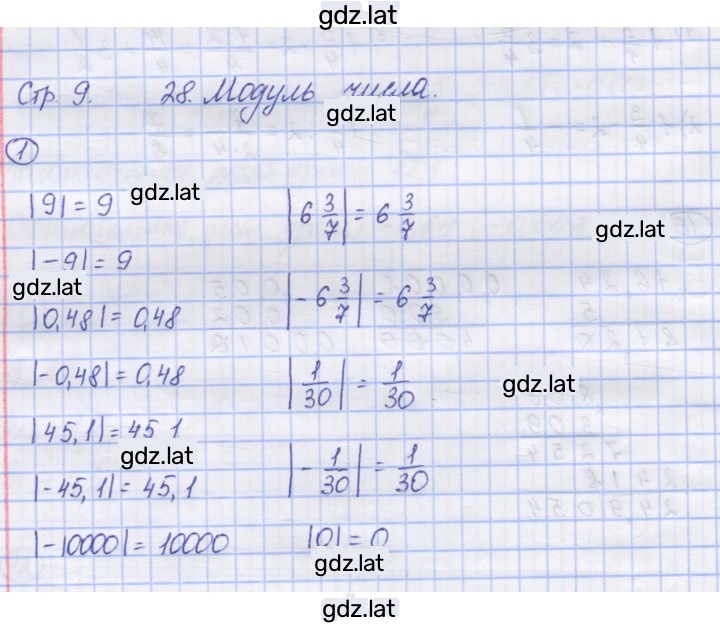 gdz.lat
Стр. 9. 28. Модуль числа.
gdz.lat
1
|9| = 9
gdz.lat
|-9| = 9
gdz.lat
|0,48| = 0,48
|-0,48| = 0,48
|45,1| = 45 1
gdz.lat
|-45,1| = 45,1
|-10000| = 10000
|6 3/7| = 6 3/7
gdz.lat
|-6 3/7| = 6 3/7
|1/30| = 1/30
gdz.lat
|-1/30| = 1/30
|0| = 0
gdz.lat
gdz.lat